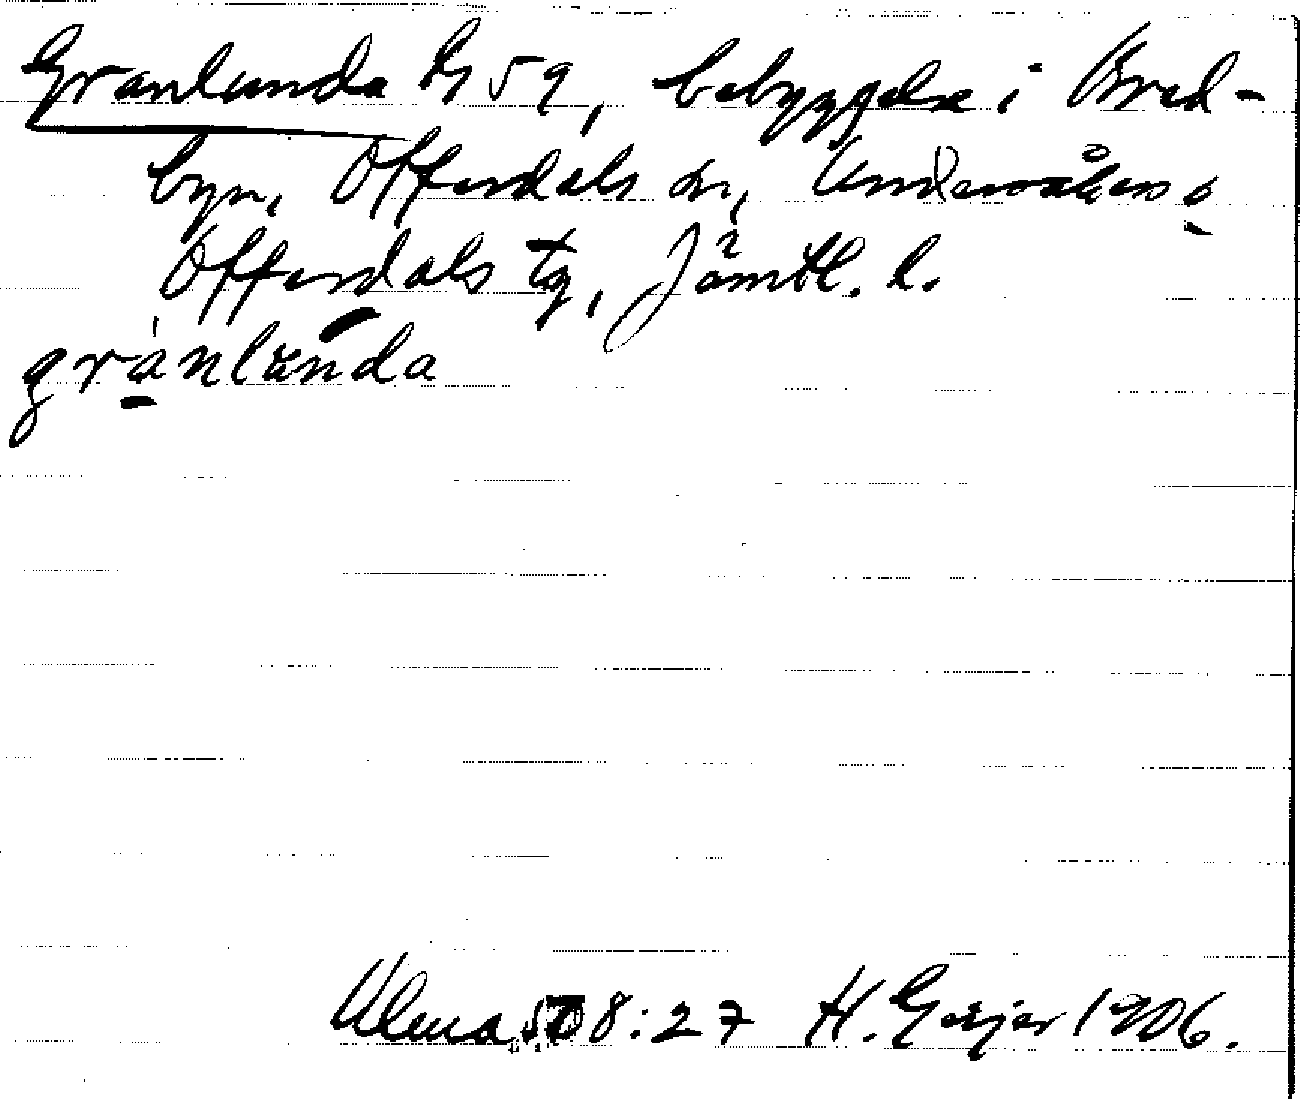 Granlunda 59, bebyggelse i Bred-
byn, Offerdals sn, Undersåkers o
Offerdals tg, Jämtl. l.
grànlùnda
Ulma 508:27 H. Geijer 1906.